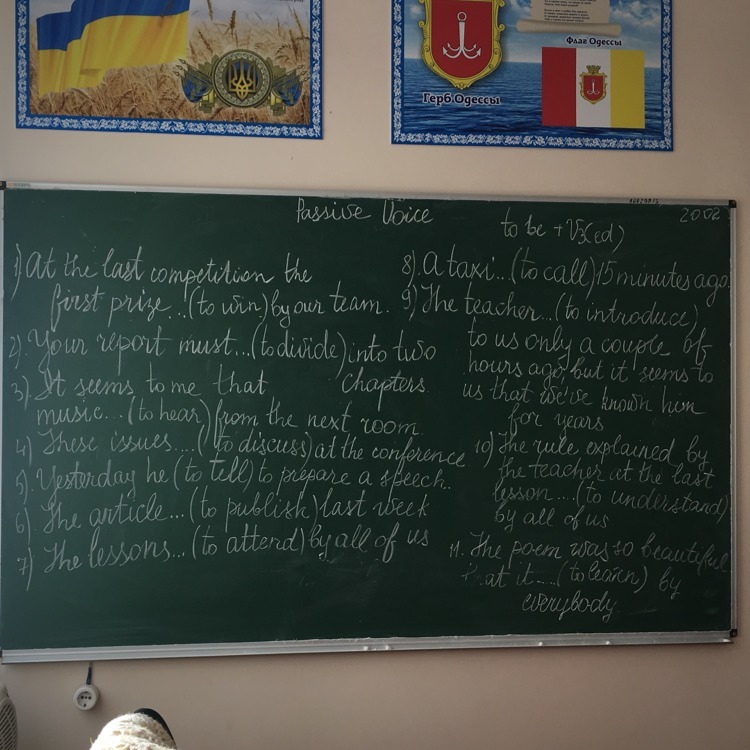 Герб Одессы
Флаг Одессы
Passive Voice
to be + V3(ed)
20.02
1) At the last competition the
first prize ... (to win) by our team.
2). Your report must... (to divide) into two
chapters
3) It seems to me that
music... (to hear) from the next room
4) These issues.... (to discuss) at the conference
5). Yesterday he (to tell) to prepare a speech.
6) The article... (to publish) last week
7) The lessons... (to attend) by all of us
8). A taxi... (to call) 15 minutes ago.
9) The teacher... (to introduce)
to us only a couple of
hours ago, but it seems to
us that we've known him
for years
10) The rule explained by
the teacher at the last
lesson .... (to understand)
by all of us
11. The poem was so beautiful
that it..... (to learn) by
everybody